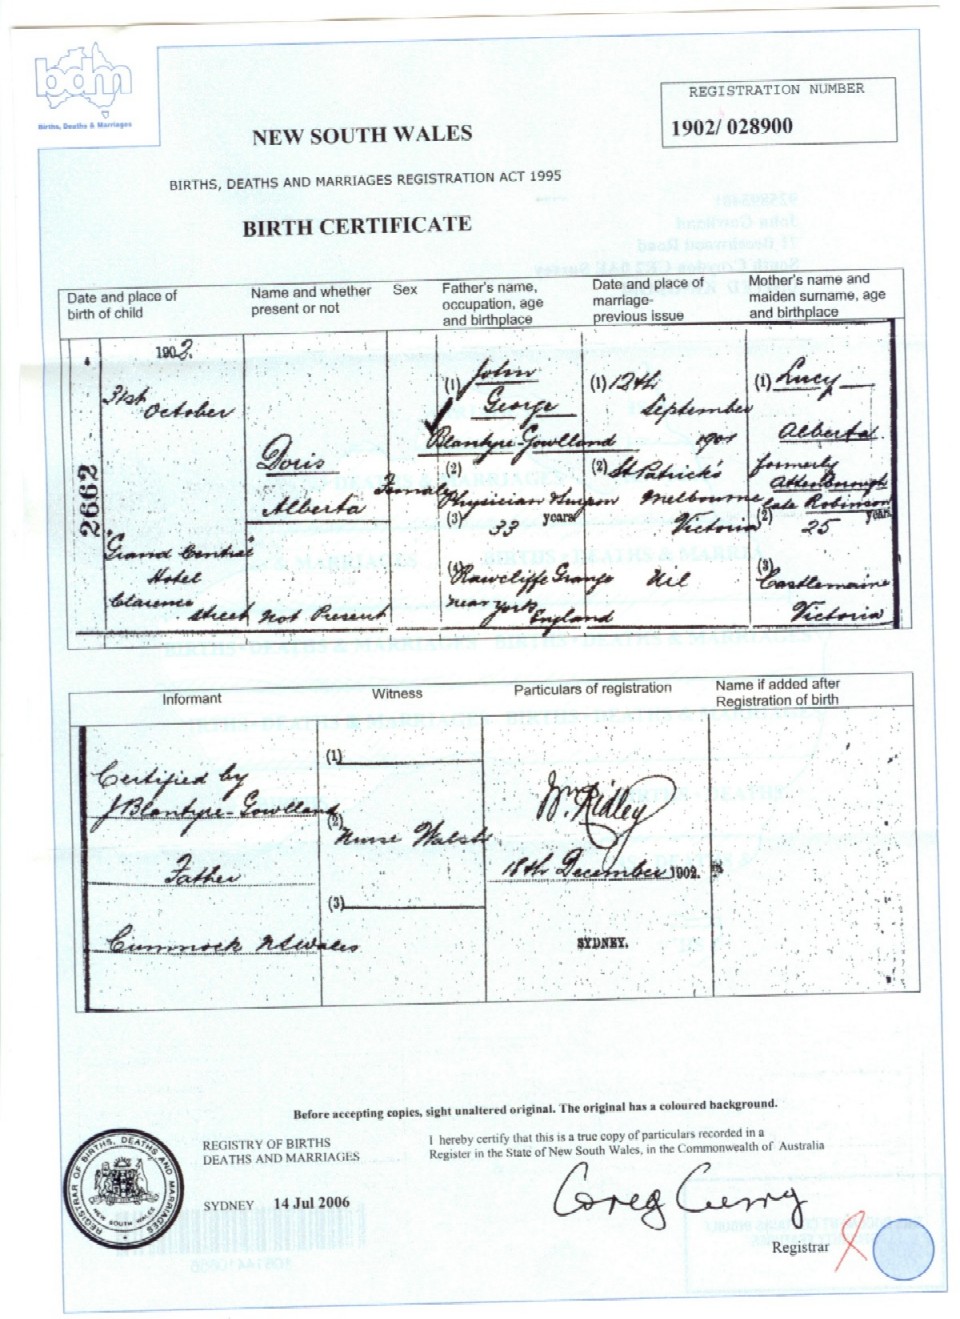 bdm
Births, Deaths & Marriages
REGISTRATION NUMBER
1902/ 028900
NEW SOUTH WALES
BIRTHS, DEATHS AND MARRIAGES REGISTRATION ACT 1995
BIRTH CERTIFICATE
Date and place of
birth of child
Name and whether
present or not
Sex
Father's name,
occupation, age
and birthplace
Date and place of
marriage-
previous issue
Mother's name and
maiden surname, age
and birthplace
2662
1902.
31st
October
"Grand Central
Hotel
Clarence
street
Doris
Alberta
Not Present
Female
(1) John
George
Blantyre-Gowlland
(2)
Physician Surgeon
(3) 33 years
(4) Rawcliffe Grange
near York
England
(1) 12th
September
1901
(2) St Patrick's
Melbourne
Victoria
Nil
(1) Lucy
Alberta
formerly
Atterborough
late Robinson
(2) 25 years
(3)
Castlemaine
Victoria
Informant
Witness
Particulars of registration
Name if added after
Registration of birth
Certified by
J Blantyre-Gowlland
Father
Cumnock NSWales
(1)
(2)
Nurse Walsh
(3)
W. Ridley
18th December 1902.
SYDNEY.
Before accepting copies, sight unaltered original. The original has a coloured background.
REGISTRY OF BIRTHS
DEATHS AND MARRIAGES
SYDNEY 14 Jul 2006
I hereby certify that this is a true copy of particulars recorded in a
Register in the State of New South Wales, in the Commonwealth of Australia
Greg Curry
Registrar
REGISTRAR OF BIRTHS, DEATHS AND MARRIAGES
NEW SOUTH WALES